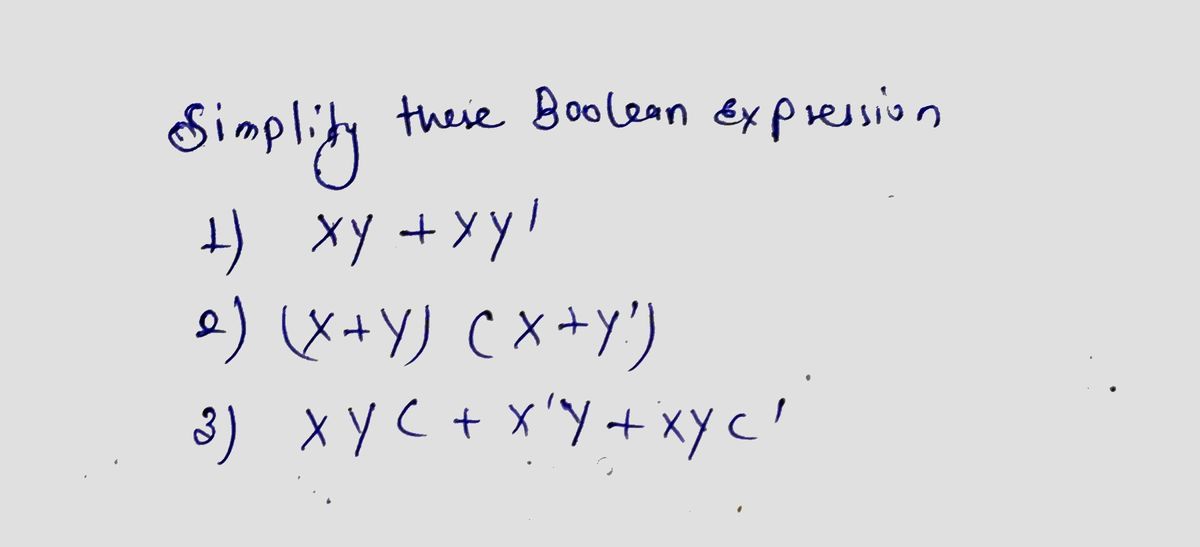 Simplify these Boolean expression
1) xy + xy'
2) (x+y) (x+y')
3) xyc + x'y + xyc'